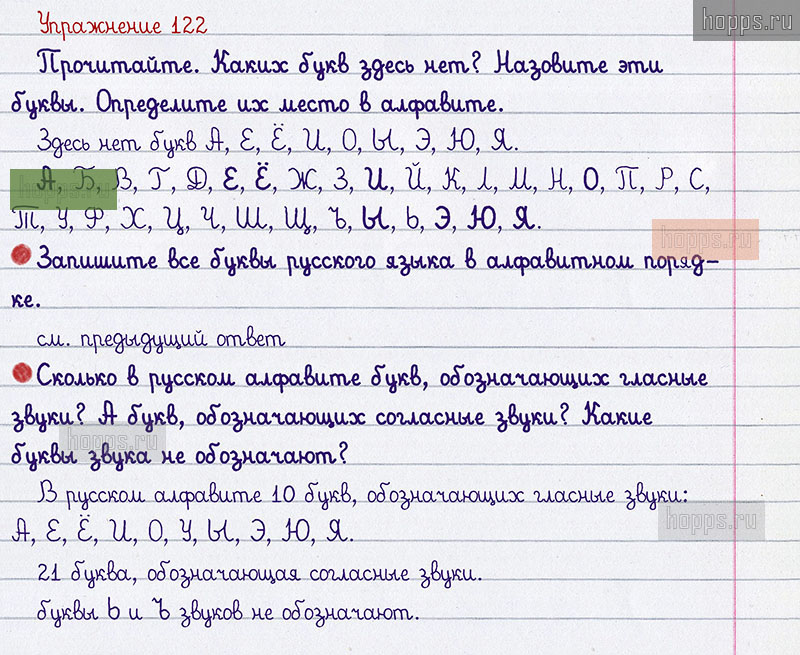 hopps.ru
Упражнение 122
Прочитайте. Каких букв здесь нет? Назовите эти
буквы. Определите их место в алфавите.
Здесь нет букв А, Е, Ё, И, О, Ы, Э, Ю, Я.
А, Б, В, Г, Д, Е, Ё, Ж, З, И, Й, К, Л, М, Н, О, П, Р, С,
hopps.ru
Т, У, Ф, Х, Ц, Ч, Ш, Щ, Ъ, Ы, Ь, Э, Ю, Я.
hopps.ru
Запишите все буквы русского языка в алфавитном поряд-
ке.
см. предыдущий ответ
Сколько в русском алфавите букв, обозначающих гласные
звуки? А букв, обозначающих согласные звуки? Какие
hopps.ru
буквы звука не обозначают?
В русском алфавите 10 букв, обозначающих гласные звуки:
hopps.ru
А, Е, Ё, И, О, У, Ы, Э, Ю, Я.
21 буква, обозначающая согласные звуки.
буквы Ь и Ъ звуков не обозначают.